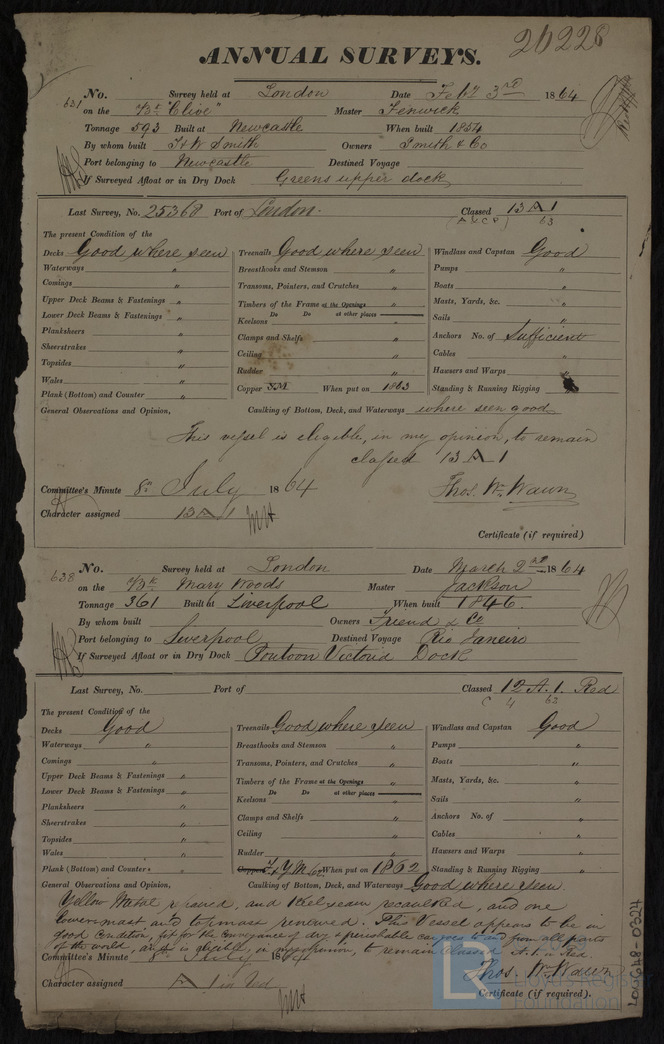 20228
ANNUAL SURVEYS.
631 No. Survey held at London Date Feby 3rd 1864
on the Bk "Clive" Master Fenwick
Tonnage 593 Built at Newcastle When built 1854
By whom built T & W Smith Owners Smith & Co
Port belonging to Newcastle Destined Voyage
If Surveyed Afloat or in Dry Dock Greens upper dock
Last Survey, No. 25368 Port of London. Classed 13 A 1
63
The present Condition of the
Decks Good where seen Treenails Good where seen Windlass and Capstan Good
Waterways " Breasthooks and Stemson " Pumps "
Comings " Transoms, Pointers, and Crutches " Boats "
Upper Deck Beams & Fastenings " Timbers of the Frame at the Openings " Masts, Yards, &c. "
Lower Deck Beams & Fastenings " Do Do at other places Sails "
Planksheers " Keelsons " Anchors No. of Sufficient
Sheerstrakes " Clamps and Shelfs " Cables "
Topsides " Ceiling " Hawsers and Warps "
Wales " Rudder " Standing & Running Rigging
Plank (Bottom) and Counter " Copper YM When put on 1863
General Observations and Opinion, Caulking of Bottom, Deck, and Waterways where seen good
This vessel is eligible, in my opinion, to remain
classed 13 A 1
Committee's Minute 8th July 1864 Thos. Wm. Wawn
Character assigned 13 A 1
Certificate (if required)
638 No. Survey held at London Date March 2nd 1864
on the Bk Mary Woods Master Jackson
Tonnage 361 Built at Liverpool When built 1846.
By whom built Owners Friend & Co
Port belonging to Liverpool Destined Voyage Rio Janeiro
If Surveyed Afloat or in Dry Dock Pontoon Victoria Dock
Last Survey, No. Port of Classed 12 A. 1. Red
4 63
The present Condition of the
Decks Good Treenails Good where seen Windlass and Capstan Good
Waterways " Breasthooks and Stemson " Pumps "
Comings " Transoms, Pointers, and Crutches " Boats "
Upper Deck Beams & Fastenings " Timbers of the Frame at the Openings " Masts, Yards, &c. "
Lower Deck Beams & Fastenings " Do Do at other places Sails "
Planksheers " Keelsons " Anchors No. of "
Sheerstrakes " Clamps and Shelfs " Cables "
Topsides " Ceiling " Hawsers and Warps "
Wales " Rudder " Standing & Running Rigging "
Plank (Bottom) and Counter " Copper Y M 62 When put on 1862
General Observations and Opinion, Caulking of Bottom, Deck, and Waterways Good where seen
Yellow Metal and Keelseam recaulked, and one
lowermast and topmast renewed. This Vessel appears to be in
good condition, fit for the conveyance of dry & perishable cargoes to and from all parts
of the world, and is eligible, in my opinion, to remain classed A. 1. in Red.
Committee's Minute 8th July 1864 Thos. Wm. Wawn
Character assigned A 1 in Red
Certificate (if required).
LR
Lloyd's Register
Foundation
LOG648-0324